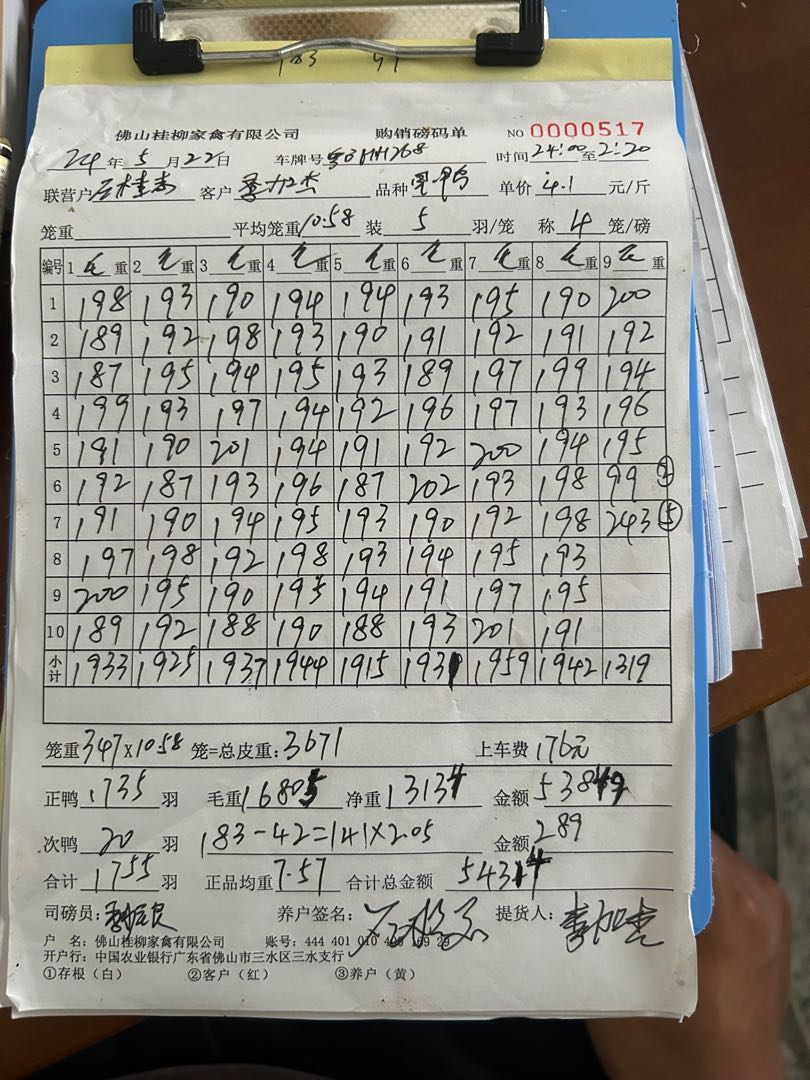 佛山桂柳家禽有限公司 购销磅码单 NO 0000517
24年5月22日 车牌号 时间24:00至2:20
联营户 客户 品种 单价4.1元/斤
笼重 平均笼重10.58 装5羽/笼 称4笼/磅
编号 1毛重 2毛重 3毛重 4毛重 5毛重 6毛重 7毛重 8毛重 9毛重
1 198 193 190 194 194 193 195 190 200
2 189 192 198 193 190 191 192 191 192
3 187 195 194 195 193 189 197 199 194
4 199 193 197 194 192 196 197 193 196
5 191 190 201 194 191 192 200 194 195
6 192 187 193 196 187 202 193 198 99
7 191 190 194 195 193 190 192 198 243 ⑤
8 197 198 192 198 193 194 195 193
9 200 195 190 195 194 191 197 195
10 189 192 188 190 188 193 201 191
小计 1933 1925 1937 1944 1915 1931 1959 1942 1319
笼重347×10.58笼=总皮重:3671 上车费176元
正鸭1735羽 毛重16805 净重13134 金额53849
次鸭20羽 183-42=141×2.05 金额289
合计1755羽 正品均重7.57 合计总金额54314
司磅员: 养户签名: 提货人:
户 名:佛山桂柳家禽有限公司 账号:444 401 010 400
开户行:中国农业银行广东省佛山市三水区三水支行
①存根(白) ②客户(红) ③养户(黄)